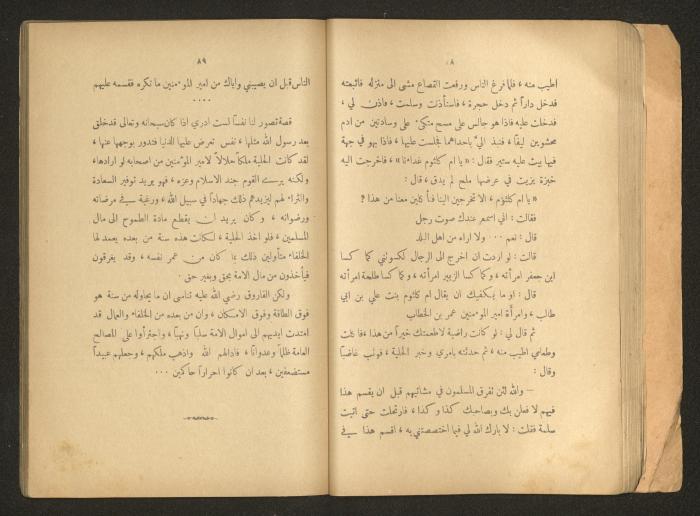 ٨
اطيب منه ، فلما فرغ الناس ورفعت القصاع مشى الى منزله فاتبعته
فدخل داراً ثم دخل حجرة ، فاستأذنت وسلمت ، فاذن لي ،
فدخلت عليه فاذا هو جالس على مسح متكئ على وسادتين من ادم
محشوتين ليفاً ، فنبذ اليّ باحداهما فجلست عليها ، فاذا بهو في جهة
فيها بيت عليه ستير فقال : « يا ام كلثوم غداءنا » ، فاخرجت اليه
خبزة بزيت في عرضها ملح لم يدق ، قال :
« يا ام كلثوم ، الا تخرجين الينا فتأكلين معنا من هذا ؟
فقالت : اني اسمع عندك صوت رجل
قال : نعم ... ولا اراه من اهل البلد
قالت : لو اردت ان اخرج الى الرجال لكسوتني كما كسا
ابن جعفر امرأته ، وكما كسا الزبير امرأته ، وكما كسا طلحة امرأته
قال : او ما يكفيك ان يقال ام كلثوم بنت علي بن ابي
طالب ، وامرأة امير المؤمنين عمر بن الخطاب
ثم قال لي : لو كانت راضية لاطعمتك خيراً من هذا ، فأكلت
وطعامي اطيب منه ، ثم حدثته بامري وخبر الحلية ، فوثب غاضباً
وقال :
— والله لئن تفرق المسلمون في مشاتيهم قبل ان يقسم هذا
فيهم لا فعلن بك وبصاحبك كذا وكذا ، فارتحلت حتى اتيت
سلمة فقلت : لا بارك الله لي فيما اختصصتني به ، اقسم هذا في
٨٩
الناس قبل ان يصيبني واياك من امير المؤمنين ما نكره فقسمه عليهم
....
قصة تصور لنا نفساً لست ادري اذا كان سبحانه وتعالى قد خلق
بعد رسول الله مثلها ، نفس تعرض عليها الدنيا فتدور بوجهها عنها ،
لقد كانت الحلية ملكاً حلالاً لامير المؤمنين من اصحابه لو ارادها ،
ولكنه يرى القوم جند الاسلام وعزه ، فهو يريد توفير السعادة
والثراء لهم ليزيدهم ذلك جهاداً في سبيل الله ، ورغبة في مرضاته
ورضوانه ، وكان يريد ان يقطع مادة الطموح الى مال
المسلمين ، فلو اخذ الحلية ، لكانت هذه سنة من بعده يعمد لها
الخلفاء متأولين ذلك بما كان من عمر نفسه ، وقد يغرقون
فيأخذون من مال الامة بحق وبغير حق .
ولكن الفاروق رضي الله عليه تناسى ان ما يحاوله من سنة هو
فوق الطاقة وفوق الامكان ، وان من بعده من الخلفاء والعمال قد
امتدت ايديهم الى اموال الامة سلباً ونهباً ، واجترأوا على المصالح
العامة ظلماً وعدواناً ، فاذلهم الله واذهب ملكهم ، وجعلهم عبيداً
مستضعفين ، بعد ان كانوا احراراً حاكمين ...